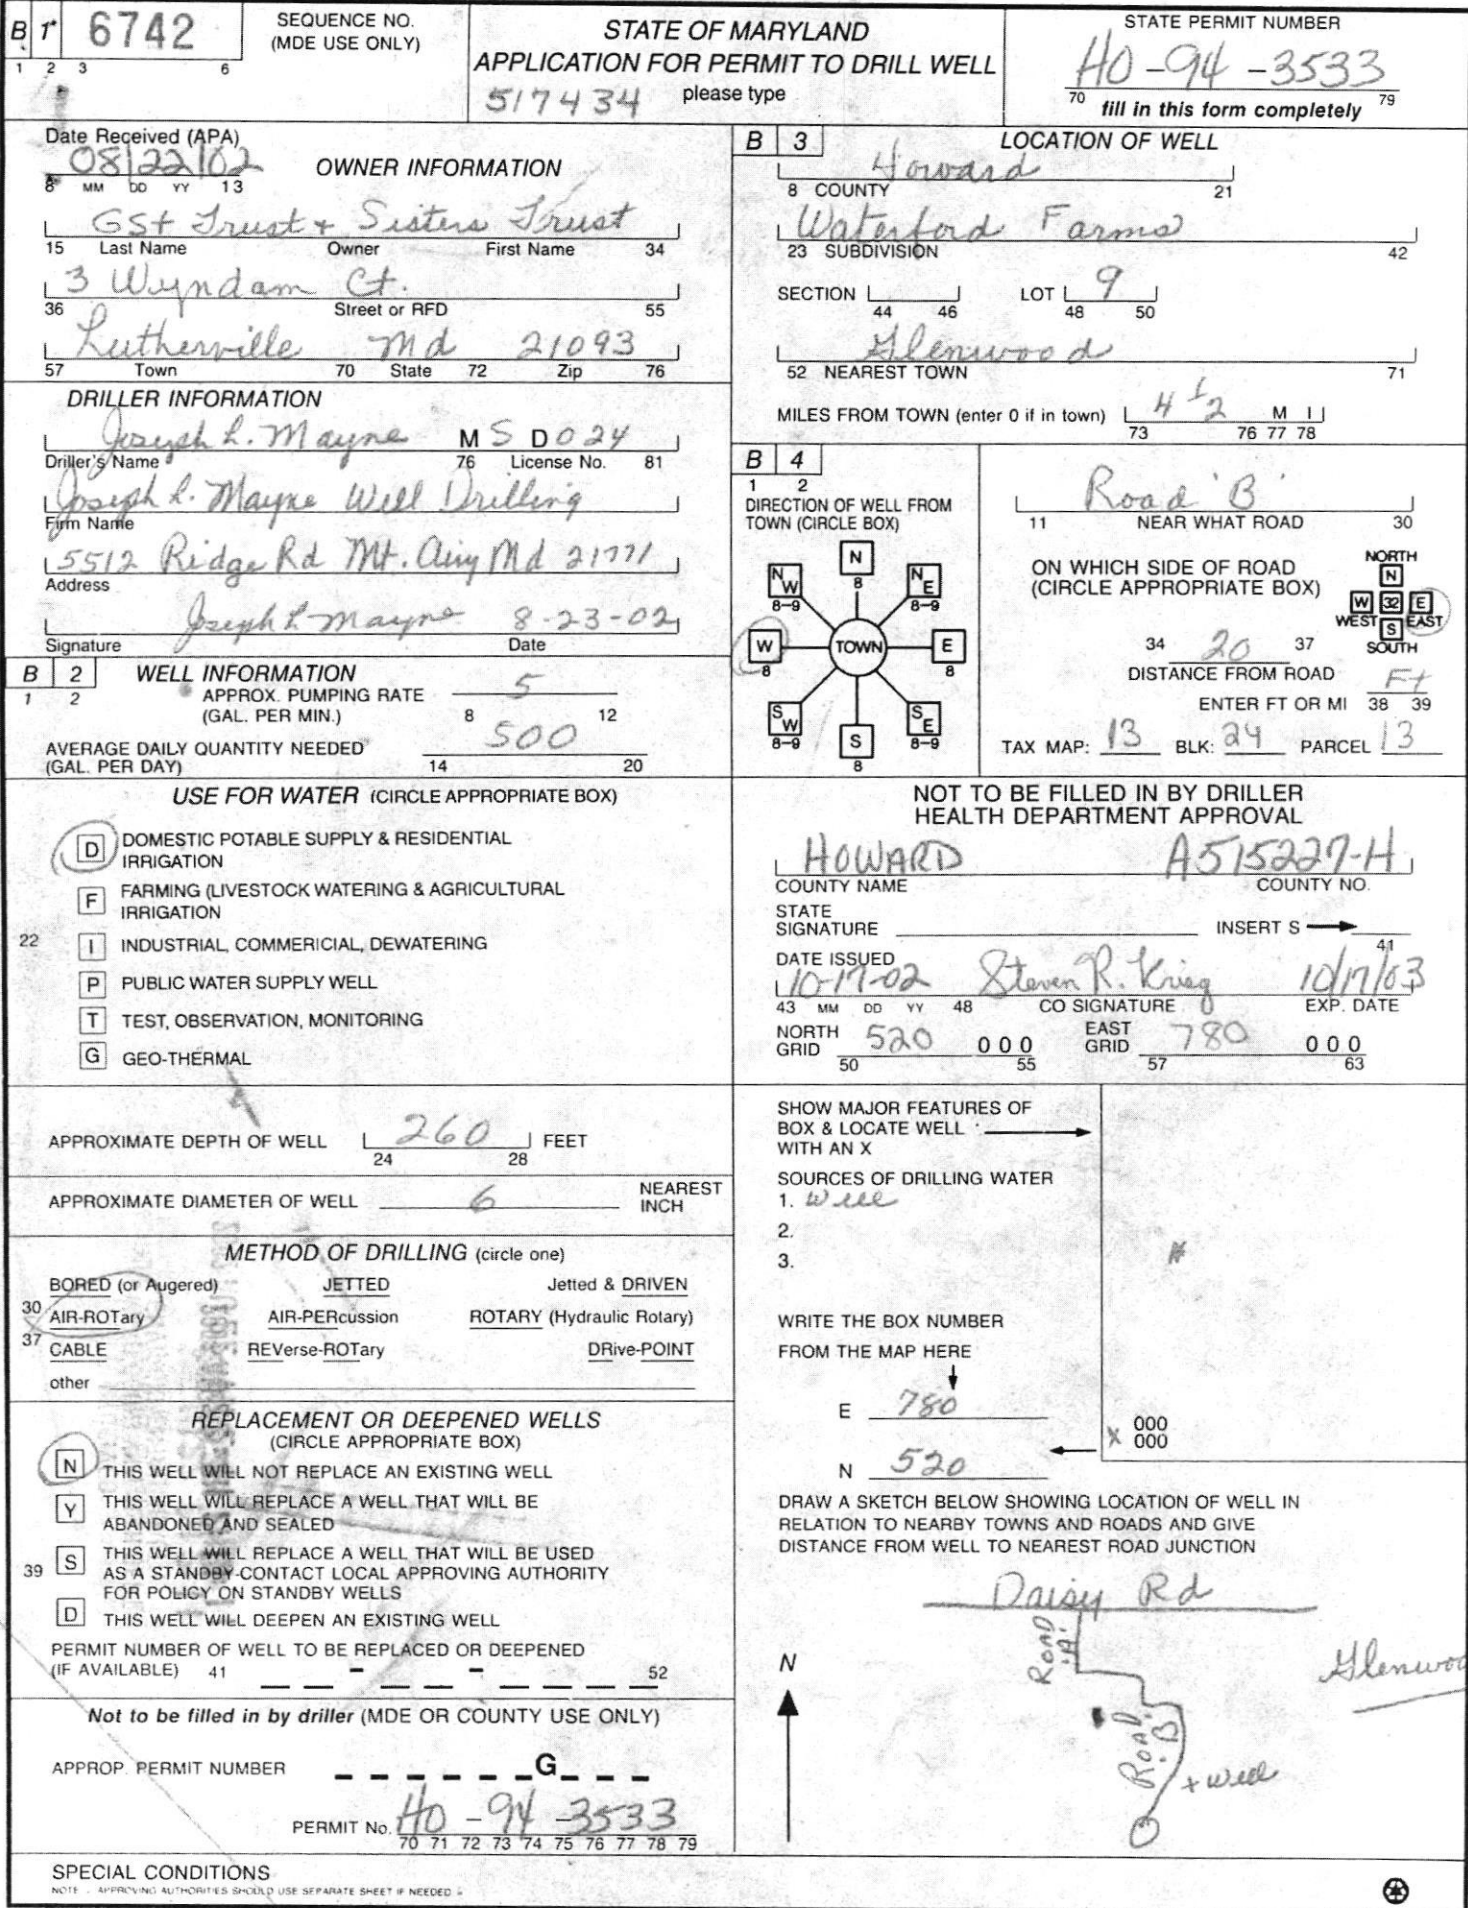 B 1 6742
SEQUENCE NO.
(MDE USE ONLY)
1 2 3 6
STATE OF MARYLAND
APPLICATION FOR PERMIT TO DRILL WELL
517434 please type
STATE PERMIT NUMBER
HO-94-3533
70 fill in this form completely 79
Date Received (APA)
08/22/02
8 MM DD YY 13
OWNER INFORMATION
GSt Trust + Sisters Trust
15 Last Name Owner First Name 34
3 Wyndam Ct.
36 Street or RFD 55
Lutherville Md 21093
57 Town 70 State 72 Zip 76
DRILLER INFORMATION
Joseph L. Mayne M S D 024
Driller's Name 76 License No. 81
Joseph L. Mayne Well Drilling
Firm Name
5512 Ridge Rd Mt. Airy Md 21771
Address
Joseph L Mayne 8-23-02
Signature Date
B 2 WELL INFORMATION
1 2
APPROX. PUMPING RATE 5
(GAL. PER MIN.) 8 12
AVERAGE DAILY QUANTITY NEEDED 500
(GAL. PER DAY) 14 20
USE FOR WATER (CIRCLE APPROPRIATE BOX)
D DOMESTIC POTABLE SUPPLY & RESIDENTIAL
IRRIGATION
F FARMING (LIVESTOCK WATERING & AGRICULTURAL
IRRIGATION
22 I INDUSTRIAL, COMMERICIAL, DEWATERING
P PUBLIC WATER SUPPLY WELL
T TEST, OBSERVATION, MONITORING
G GEO-THERMAL
APPROXIMATE DEPTH OF WELL 260 FEET
24 28
APPROXIMATE DIAMETER OF WELL 6 NEAREST
INCH
METHOD OF DRILLING (circle one)
BORED (or Augered) JETTED Jetted & DRIVEN
30 AIR-ROTary AIR-PERcussion ROTARY (Hydraulic Rotary)
37 CABLE REVerse-ROTary DRive-POINT
other
REPLACEMENT OR DEEPENED WELLS
(CIRCLE APPROPRIATE BOX)
N THIS WELL WILL NOT REPLACE AN EXISTING WELL
Y THIS WELL WILL REPLACE A WELL THAT WILL BE
ABANDONED AND SEALED
39 S THIS WELL WILL REPLACE A WELL THAT WILL BE USED
AS A STANDBY-CONTACT LOCAL APPROVING AUTHORITY
FOR POLICY ON STANDBY WELLS
D THIS WELL WILL DEEPEN AN EXISTING WELL
PERMIT NUMBER OF WELL TO BE REPLACED OR DEEPENED
(IF AVAILABLE) 41 - - 52
Not to be filled in by driller (MDE OR COUNTY USE ONLY)
APPROP. PERMIT NUMBER G
PERMIT No. HO-94-3533
70 71 72 73 74 75 76 77 78 79
SPECIAL CONDITIONS
NOTE - APPROVING AUTHORITIES SHOULD USE SEPARATE SHEET IF NEEDED
B 3 LOCATION OF WELL
Howard
8 COUNTY 21
Waterford Farms
23 SUBDIVISION 42
SECTION LOT 9
44 46 48 50
Glenwood
52 NEAREST TOWN 71
MILES FROM TOWN (enter 0 if in town) 4 1/2 M I
73 76 77 78
B 4
1 2
DIRECTION OF WELL FROM
TOWN (CIRCLE BOX)
N
8
NW NE
8-9 8-9
W TOWN E
8 8
SW SE
8-9 8-9
S
8
Road 'B'
11 NEAR WHAT ROAD 30
ON WHICH SIDE OF ROAD
(CIRCLE APPROPRIATE BOX)
NORTH
N
W 32 E
WEST EAST
S
SOUTH
34 20 37
DISTANCE FROM ROAD
ENTER FT OR MI Ft
38 39
TAX MAP: 13 BLK: 24 PARCEL 13
NOT TO BE FILLED IN BY DRILLER
HEALTH DEPARTMENT APPROVAL
HOWARD A515227-H
COUNTY NAME COUNTY NO.
STATE
SIGNATURE INSERT S
41
DATE ISSUED
10-17-02 Steven R. Krieg 10/17/03
43 MM DD YY 48 CO SIGNATURE EXP. DATE
NORTH
GRID 520 000 EAST
GRID 780 000
50 55 57 63
SHOW MAJOR FEATURES OF
BOX & LOCATE WELL
WITH AN X
SOURCES OF DRILLING WATER
1. Well
2.
3.
WRITE THE BOX NUMBER
FROM THE MAP HERE
E 780
N 520
X 000
000
DRAW A SKETCH BELOW SHOWING LOCATION OF WELL IN
RELATION TO NEARBY TOWNS AND ROADS AND GIVE
DISTANCE FROM WELL TO NEAREST ROAD JUNCTION
Daisy Rd
ROAD 'A'
N
Glenwoo
ROAD 'B'
+ Well